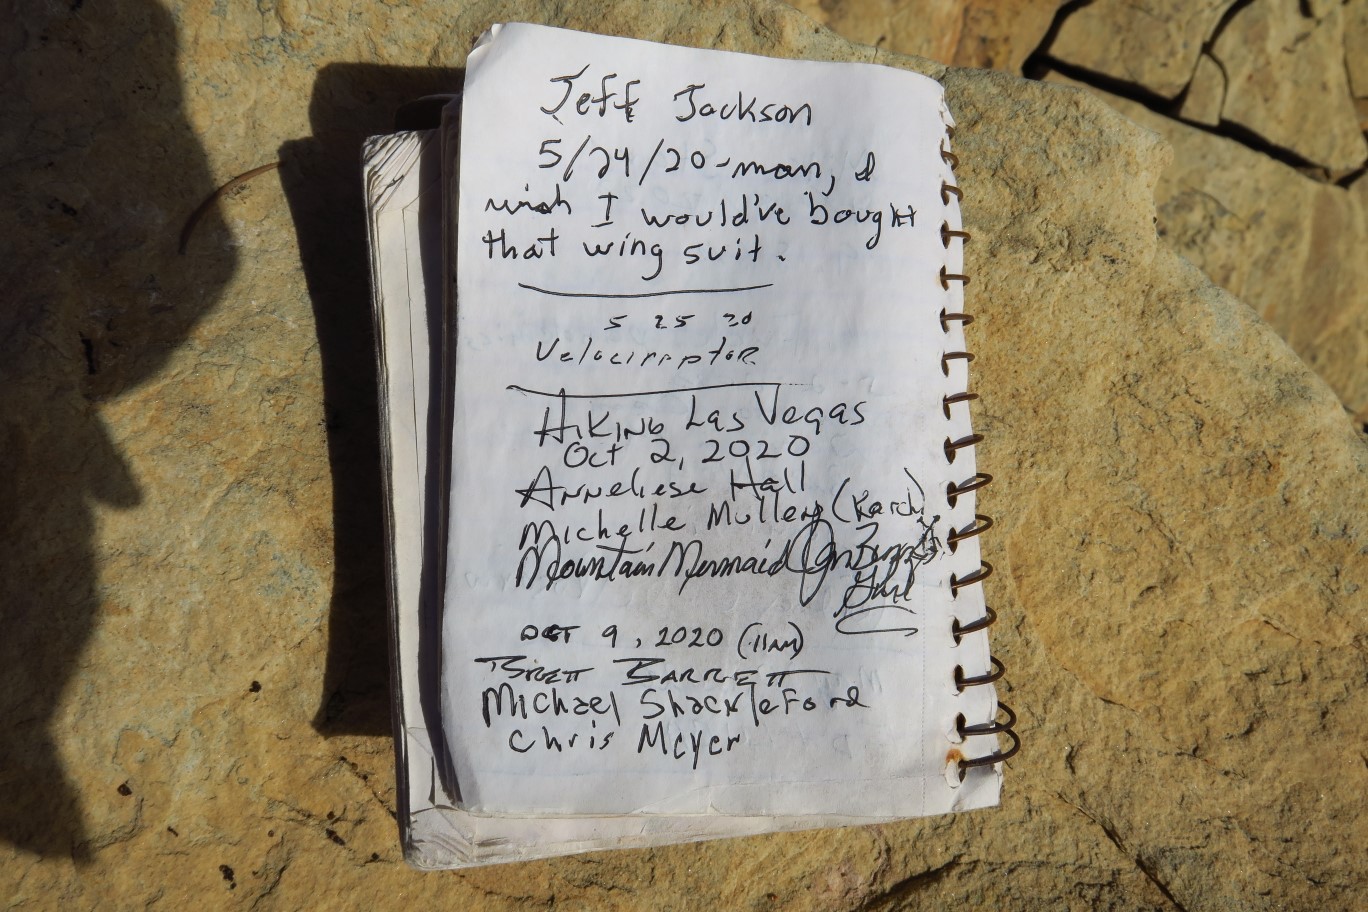 Jeff Jackson
5/24/20-man, I
wish I would've bought
that wing suit.
5 25 20
Velociraptor
Hiking Las Vegas
Oct 2, 2020
Anneliese Hall
Michelle Mullery (Karch)
Mountain Mermaid
Girl
Oct 9, 2020 (11AM)
Brett Barrett
Michael Shackleford
Chris Meyer